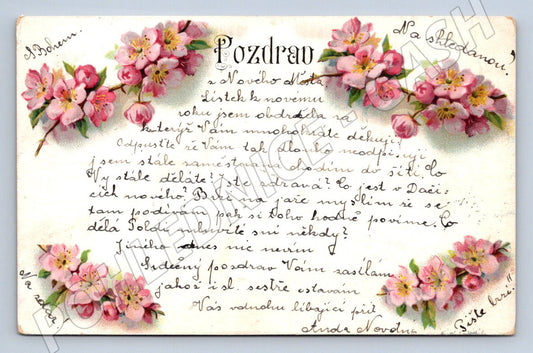 S Bohem.
Na shledanou!
Pozdrav
z Nového Města
Lístek k novému
roku jsem obdržela za
kterýž Vám mnohokráte děkuji
Odpusťte že Vám tak dlouho neodpisuji
jsem stále zaměstnána chodím do šití. Co
Vy stále děláte? Jste zdravá? Co jest v Dači-
cích nového? Brzi na jaře myslím že se
tam podívám pak si toho hodně povíme. Co
dělá Poldy mluvíte s ní někdy?
Jiného dnes nic nevím
Srdečný pozdrav Vám zasílám
jakož i sl. sestře zůstávám
Vás vdnohu líbající přít
Anda Novotna
Na zdar
Pište brzi!
POHLEDNICE CASH